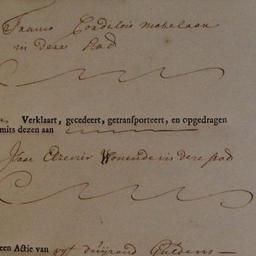 Frans Cordelois makelaar
in deze stad
Verklaart, gecedeert, getransporteert, en opgedragen
mits dezen aan
Wonende in deze stad
een Actie van vyf duijzend Guldens